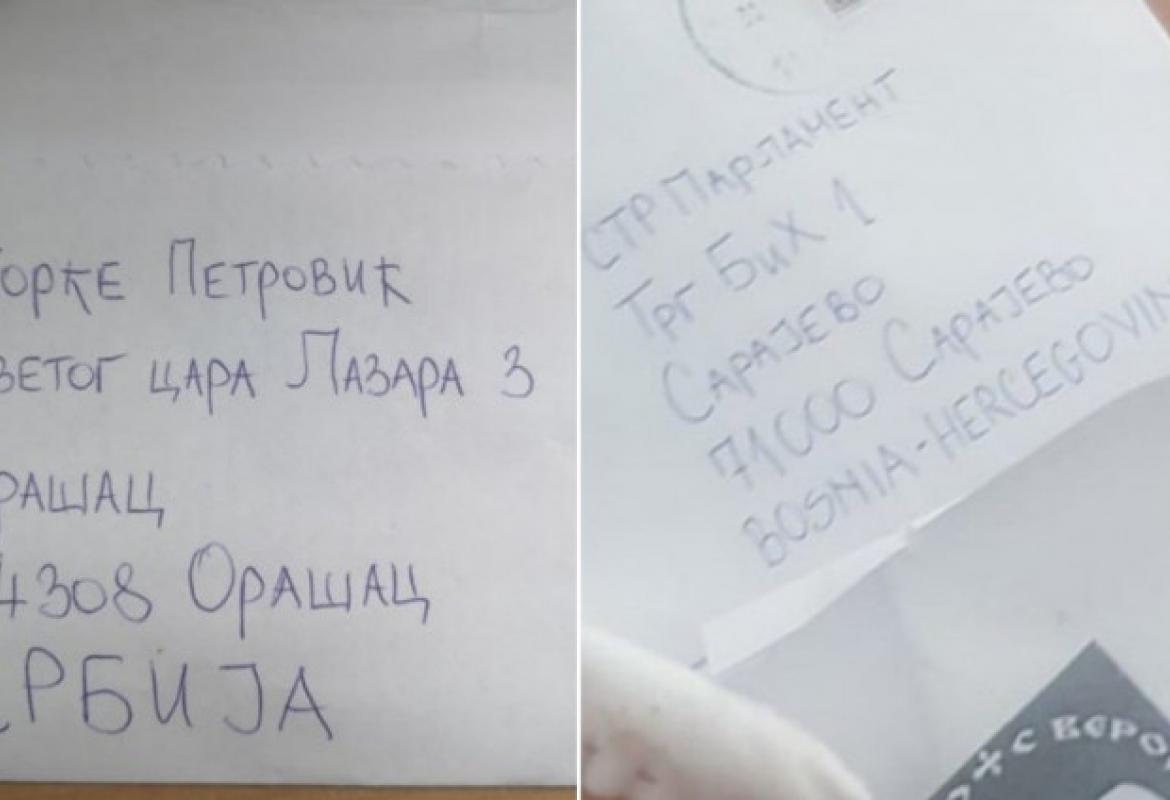 ОРЂЕ ПЕТРОВИЋ
ВЕТОГ ЦАРА ЛАЗАРА 3
РАШАЦ
4308 ОРАШАЦ
РБИЈА
СТР ПАРЛАМЕНТ
ТРГ БИХ 1
САРАЈЕВО
71000 САРАЈЕВО
BOSNIA-HERCEGOVIN
С ВЕРО